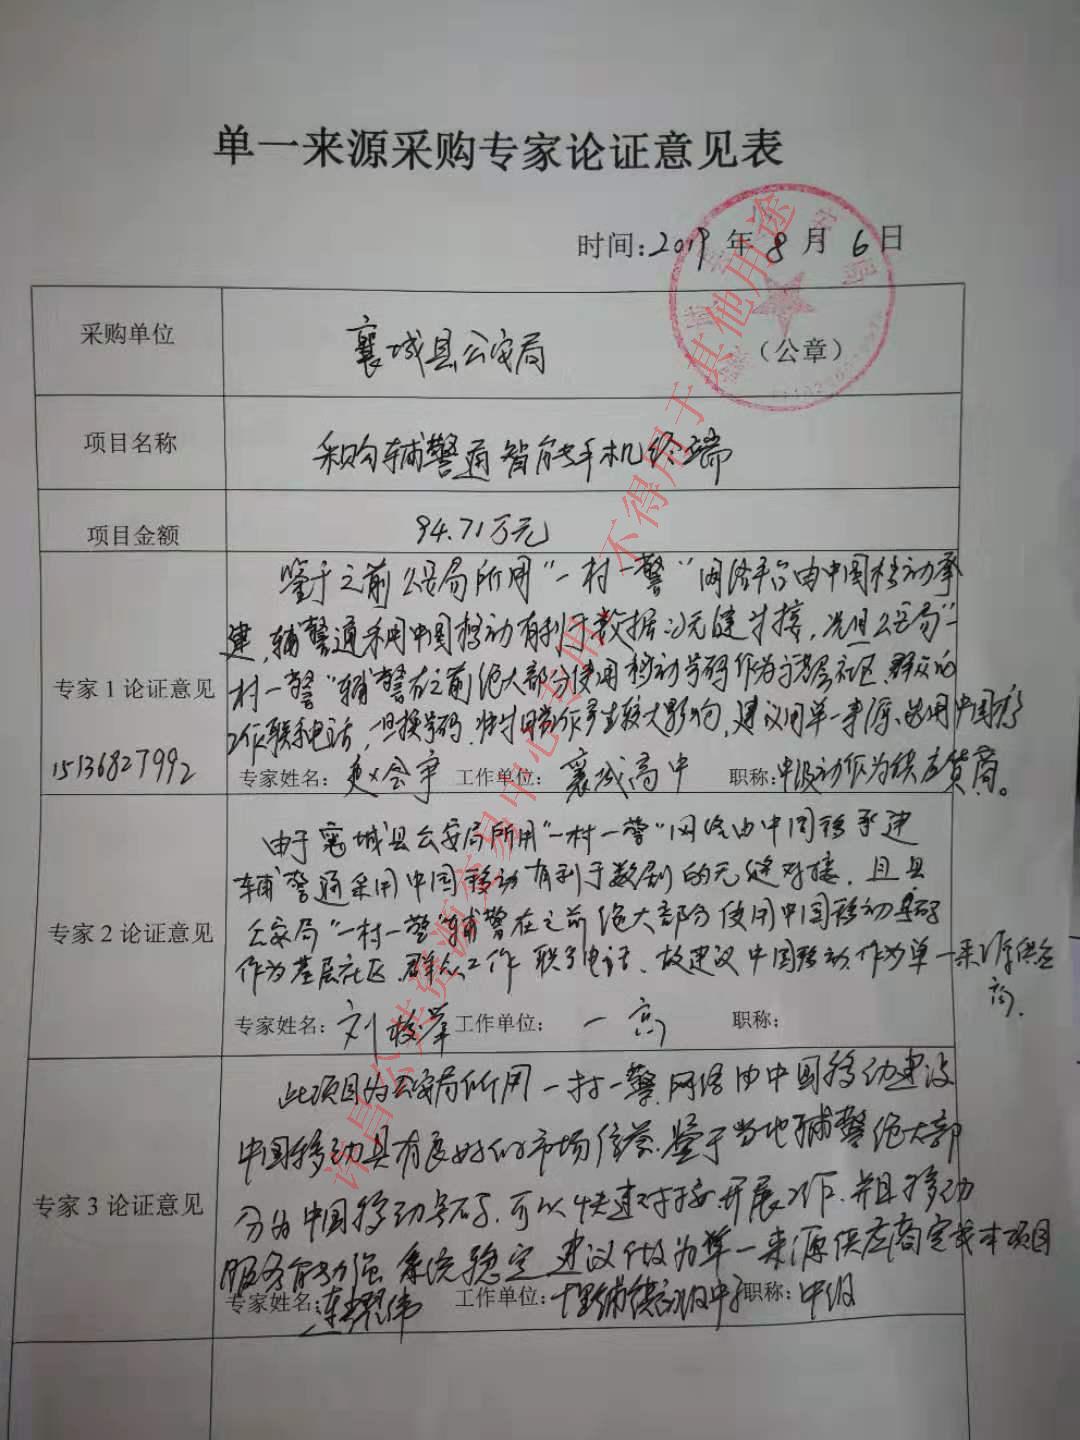 单一来源采购专家论证意见表
时间:2019年8月6日
采购单位
襄城县公安局
（公章）
项目名称
采购辅警通智能手机终端
项目金额
94.71万元
鉴于之前公安局所用“一村一警”网络平台由中国移动承
建，辅警通采用中国移动有利于数据的无缝对接，况且公安局“一
村一警”辅警在之前绝大部分使用移动号码作为基层社区、群众的
工作联系电话，但换号码，将对日常工作产生较大影响，建议用单一来源、选用中国移
专家1论证意见
15136827992
专家姓名:
赵会宇
工作单位:
襄城高中
职称:
中级
动作为供应货商。
由于襄城县公安局所用“一村一警”网络由中国移承建
辅警通采用中国移动有利于数剧的无缝对接，且县
公安局“一村一警”辅警在之前绝大部分使用中国移动号码
作为基层社区、群众工作联系电话、故建议中国移动作为单一来源供应
商.
专家2论证意见
专家姓名:
刘
工作单位:
一高
职称:
此项目为公安局所用一村一警网络由中国移动建设
中国移动具有良好的市场信誉.鉴于当地辅警绝大部
分为中国移动号码，可以快速对接开展工作.并且移动
服务能力强 系统稳定 建议做为单一来源供应商完成本项目
专家3论证意见
专家姓名:
工作单位:
职称:
中级
许昌公共资源交易中心专用，不得用于其他用途